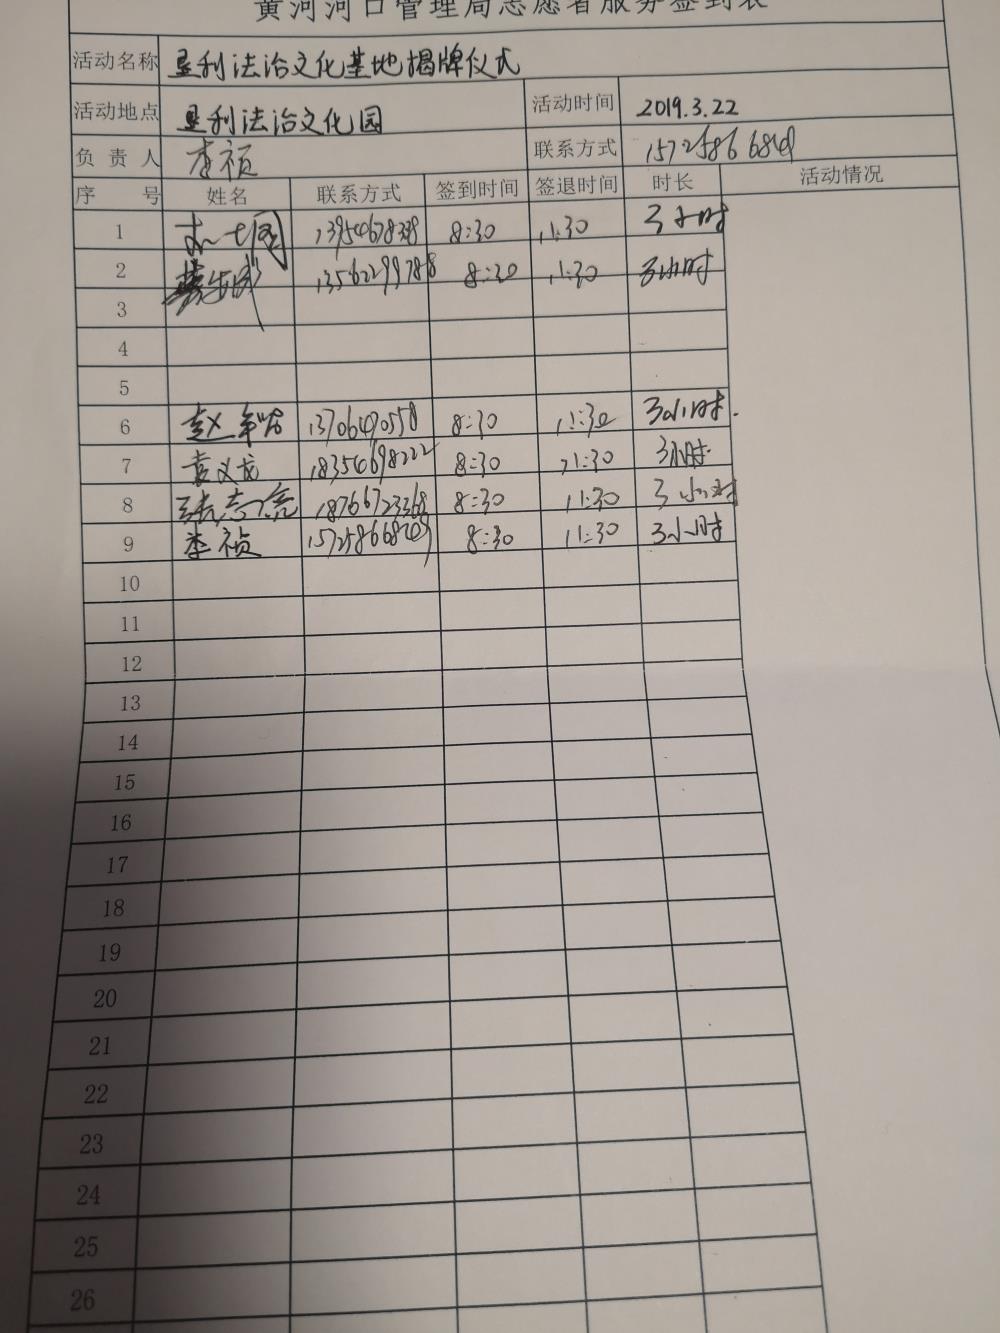 黄河河口管理局志愿者服务签到表
活动名称 垦利法治文化基地揭牌仪式
活动地点 垦利法治文化园 活动时间 2019.3.22
负责人 李祯 联系方式 15725866849
序号 姓名 联系方式 签到时间 签退时间 时长 活动情况
1 8:30 11:30 3小时
2 13562299788 8:30 11:30 3小时
3
4
5
6 赵 13706490558 8:30 11:30 3小时.
7 袁义龙 18354698222 8:30 11:30 3小时
8 张志 18766723368 8:30 11:30 3小时
9 李祯 8:30 11:30 3小时
10
11
12
13
14
15
16
17
18
19
20
21
22
23
24
25
26